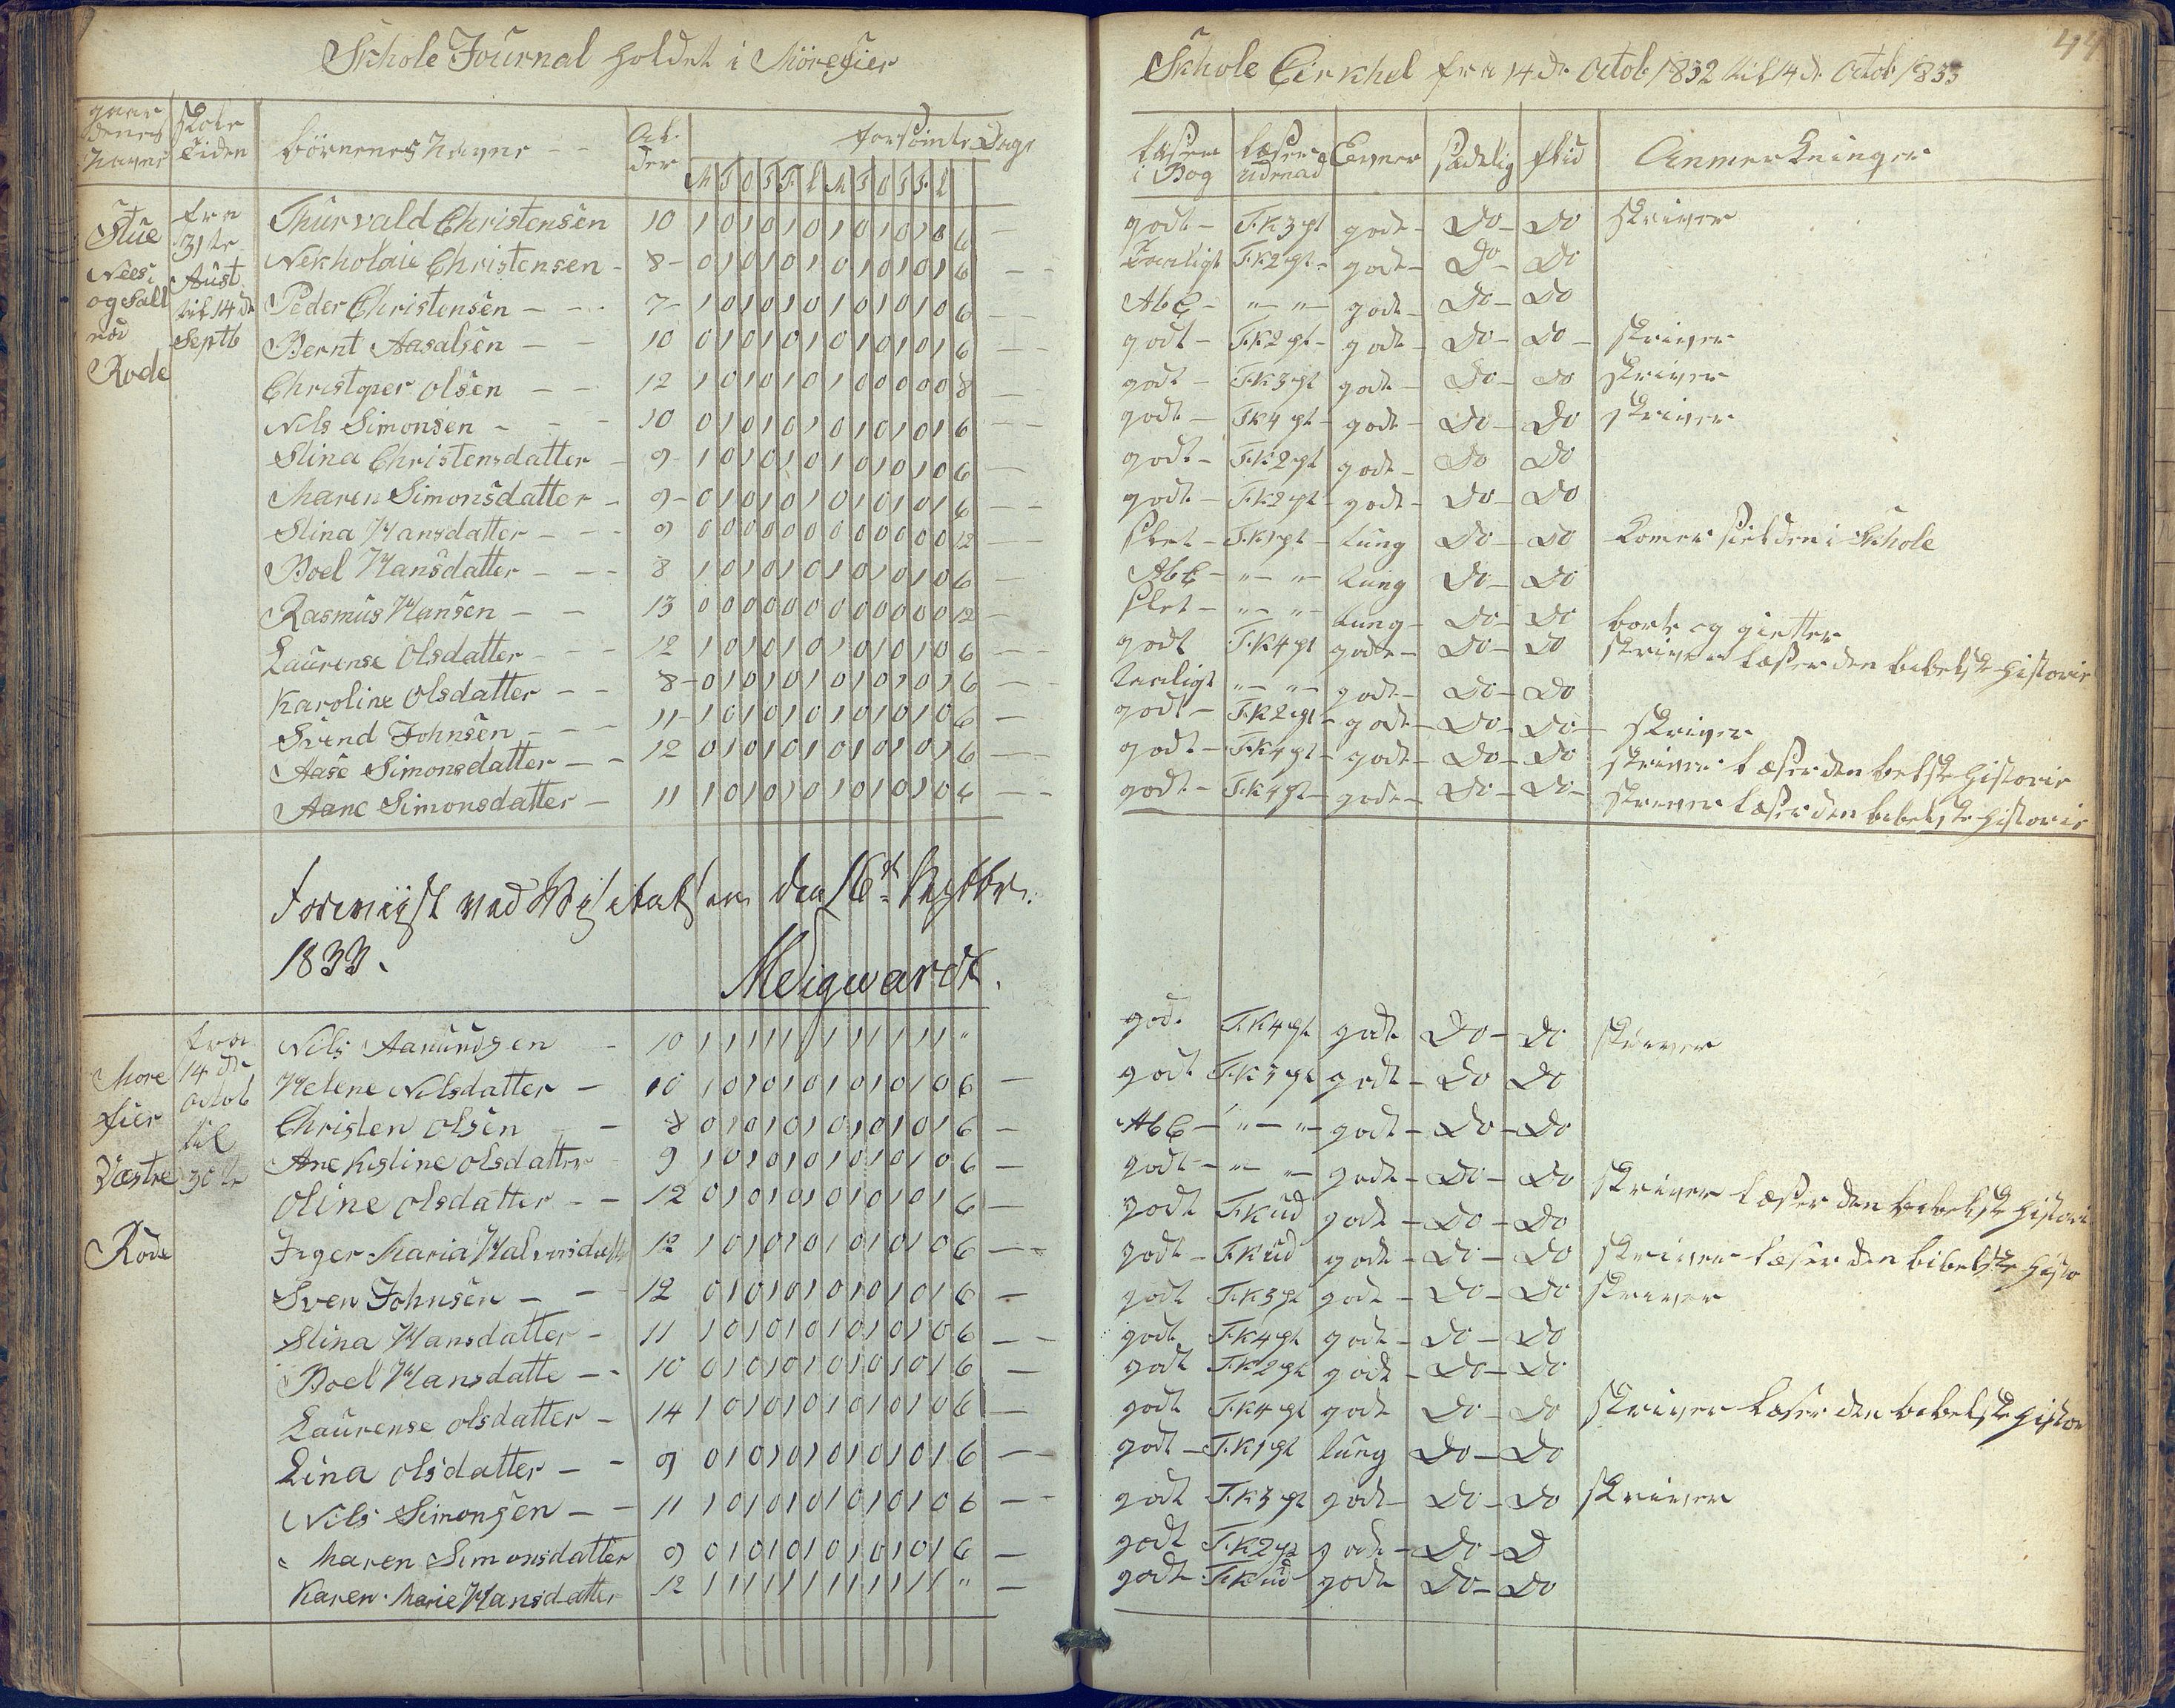 Skhole Journal holdet i Mörefier Skhole Cirkhel fra 14 de Octob 1832 til 14 de Octob 1833
44
gaardenes Navne skole tiden börnenes Navne Alder forsömte Dage læser i Bog læser udenad Evner sædelig flid Anmerkninger
M T O T F L M T O T F L
Stue Nees og
Rode
fra 31te Aust til 14 de Septb
Thurvald Christensen 10 1 0 1 0 1 0 1 0 1 0 1 0 6 godt F.K 3 pt godt Do Do skriver
Nekholaie Christensen 8 0 1 0 1 0 1 0 1 0 1 0 1 6 Temligt F.K 2 pt godt Do Do
Peder Christensen 7 1 0 1 0 1 0 1 0 1 0 1 0 6 AbC " " godt Do Do
Bernt Aasalsen 10 0 1 0 1 0 1 0 1 0 1 0 1 6 godt F.K 2 pt godt Do Do skriver
Christper Olsen 12 1 0 1 0 1 0 1 0 0 0 0 0 8 godt F.K 3 pt godt Do Do skriver
Nils Simonsen 10 0 1 0 1 0 1 0 1 0 1 0 1 6 godt F.K 4 pt godt Do Do skriver
Stina Christensdatter 9 1 0 1 0 1 0 1 0 1 0 1 0 6 godt F.K 2 pt godt Do Do
Maren Simonsdatter 9 0 1 0 1 0 1 0 1 0 1 0 1 6 godt F.K 2 pt godt Do Do
Stina Hansdatter 9 0 0 0 0 0 0 0 0 0 0 0 0 12 slet F.K 1 pt tung Do Do komer sielden i Skhole
Boel Hansdatter 8 1 0 1 0 1 0 1 0 1 0 1 0 6 AbC " " tung Do Do
Rasmus Hansen 13 0 0 0 0 0 0 0 0 0 0 0 0 12 slet " " tung Do Do borte og gietter
Laurense Olsdatter 12 1 0 1 0 1 0 1 0 1 0 1 0 6 godt F.K 4 pt godt Do Do skriver læser den bibelske historie
Karoline Olsdatter 8 0 1 0 1 0 1 0 1 0 1 0 1 6 temligt " " godt Do Do
Svend Johnsen 11 1 0 1 0 1 0 1 0 1 0 1 0 6 godt F.K 2 pt godt Do Do skriver
Aase Simonsdatter 12 0 1 0 1 0 1 0 1 0 1 0 1 6 godt F.K 4 pt godt Do Do skriver læser den belske historie
Aane Simonsdatter 11 1 0 1 0 1 0 1 0 1 0 1 0 6 godt F.K 4 pt godt Do Do skriver læser den bibelske historie
Foreviist ved Visitatsen den 16d Septbr.
1833.
Meigwardt.
More fier Væstre Rode
fra 14 de Octob til 30 te
Nils Aamundsen 10 1 1 1 1 1 1 1 1 1 1 1 1 " godt F.K 4 pt godt Do Do skriver
Helene Nilsdatter 10 1 0 1 0 1 0 1 0 1 0 1 0 6 godt F.K 3 pt godt Do Do
Christen Olsen 8 0 1 0 1 0 1 0 1 0 1 0 1 6 AbC " " godt Do Do
Ane Kistine Olsdatter 9 1 0 1 0 1 0 1 0 1 0 1 0 6 godt " " godt Do Do
Oline Olsdatter 12 0 1 0 1 0 1 0 1 0 1 0 1 6 godt F.K ud godt Do Do skriver læser den bibelske histori
Inger Maria Halvorsdatter 12 1 0 1 0 1 0 1 0 1 0 1 0 6 godt F.K ud godt Do Do skriver læser den bibelske histo
Sven Johnsen 12 0 1 0 1 0 1 0 1 0 1 0 1 6 godt F.K 3 pt godt Do Do skriver
Stina Hansdatter 11 1 0 1 0 1 0 1 0 1 0 1 0 6 godt F.K 4 pt godt Do Do
Boel Hansdatte 10 0 1 0 1 0 1 0 1 0 1 0 1 6 godt F.K 2 pt godt Do Do
Laurense Olsdatter 14 1 0 1 0 1 0 1 0 1 0 1 0 6 godt F.K 4 pt godt Do Do skriver læser den bibelske histor
Lina Olsdatter 9 0 1 0 1 0 1 0 1 0 1 0 1 6 godt F.K 1 pt tung Do Do
Nils Simonsen 11 1 0 1 0 1 0 1 0 1 0 1 0 6 godt F.K 3 pt godt Do Do skriver
Maren Simonsdatter 9 0 1 0 1 0 1 0 1 0 1 0 1 6 godt F.K 2 pt godt Do D
Karen Marie Hansdatter 12 1 1 1 1 1 1 1 1 1 1 1 1 " godt F.K ud godt Do Do